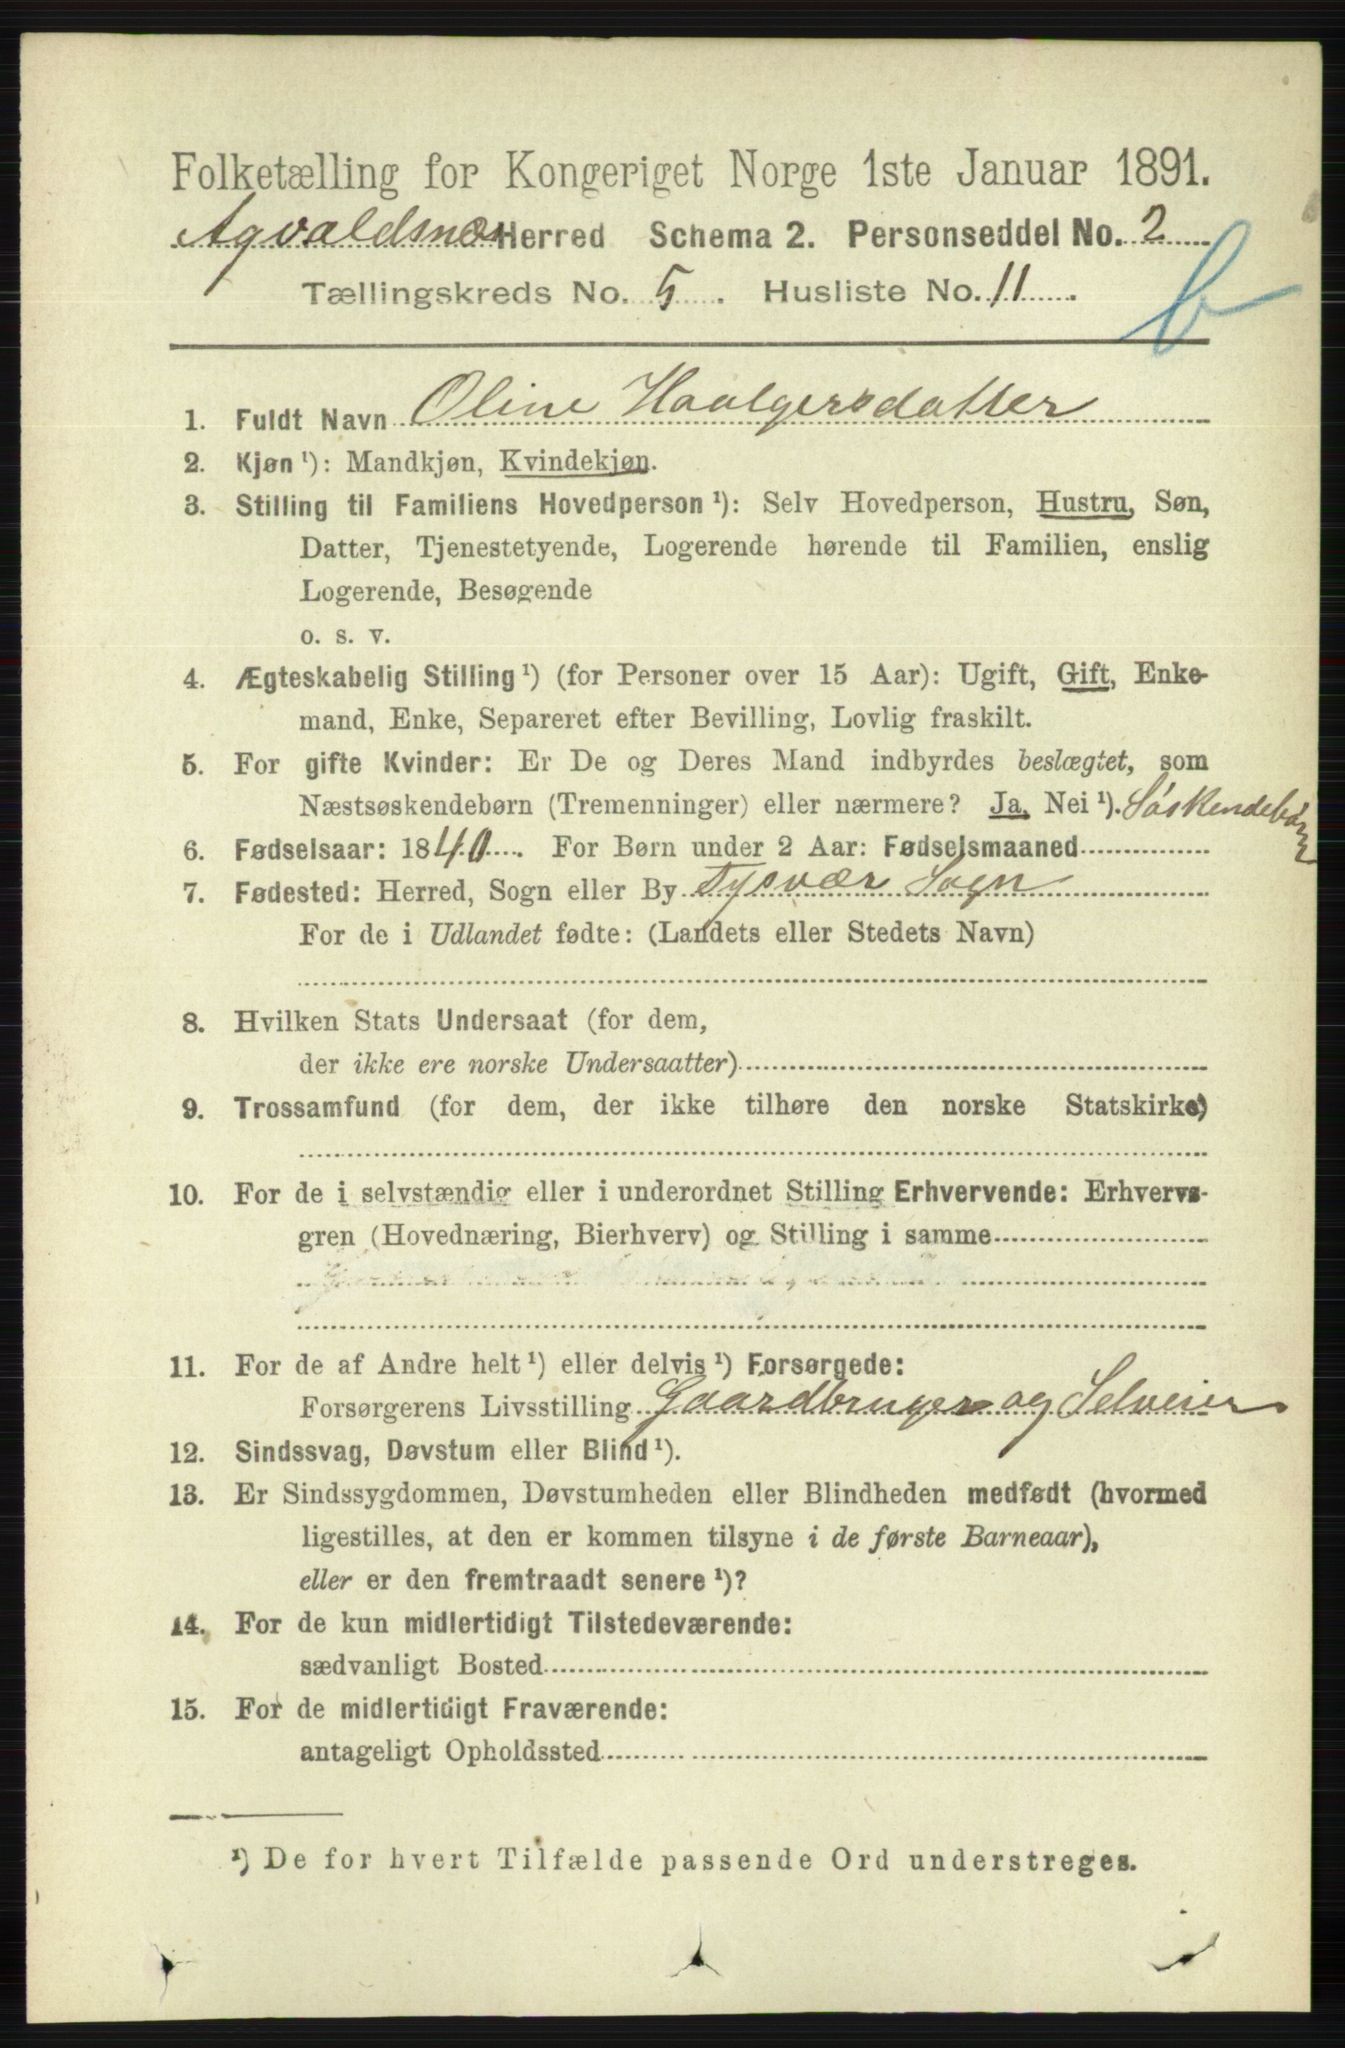 Folketælling for Kongeriget Norge 1ste Januar 1891.
Agvaldsnæs Herred Schema 2. Personseddel No. 2
Tællingskreds No. 5. Husliste No. 11.
b
1. Fuldt Navn Oline Haalgersdatter
2. Kjøn ¹): Mandkjøn, Kvindekjøn.
3. Stilling til Familiens Hovedperson ¹): Selv Hovedperson, Hustru, Søn,
Datter, Tjenestetyende, Logerende hørende til Familien, enslig
Logerende, Besøgende
o. s. v.
4. Ægteskabelig Stilling ¹) (for Personer over 15 Aar): Ugift, Gift, Enke-
mand, Enke, Separeret efter Bevilling, Lovlig fraskilt.
5. For gifte Kvinder: Er De og Deres Mand indbyrdes beslægtet, som
Næstsøskendebørn (Tremenninger) eller nærmere? Ja, Nei ¹). Søskendebørn
6. Fødselsaar: 1840. For Børn under 2 Aar: Fødselsmaaned
7. Fødested: Herred, Sogn eller By Tysvær Sogn
For de i Udlandet fødte: (Landets eller Stedets Navn)
8. Hvilken Stats Undersaat (for dem,
der ikke ere norske Undersaatter)
9. Trossamfund (for dem, der ikke tilhøre den norske Statskirke)
10. For de i selvstændig eller i underordnet Stilling Erhvervende: Erhvervs-
gren (Hovednæring, Bierhverv) og Stilling i samme
11. For de af Andre helt ¹) eller delvis ¹) Forsørgede:
Forsørgerens Livsstilling Gaardbruger og Selveier
12. Sindssvag, Døvstum eller Blind ¹).
13. Er Sindssygdommen, Døvstumheden eller Blindheden medfødt (hvormed
ligestilles, at den er kommen tilsyne i de første Barneaar),
eller er den fremtraadt senere ¹)?
14. For de kun midlertidigt Tilstedeværende:
sædvanligt Bosted
15. For de midlertidigt Fraværende:
antageligt Opholdssted
¹) De for hvert Tilfælde passende Ord understreges.